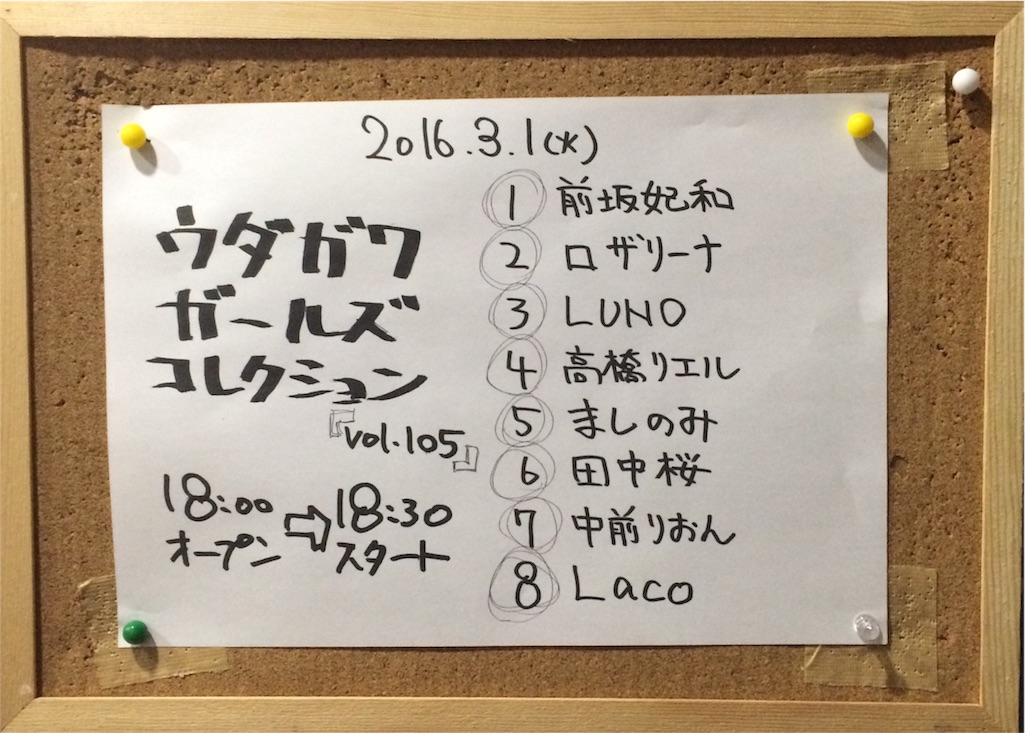 2016.3.1(火)
ウダガワ
ガールズ
コレクション
『vol.105』
18:00 ⇨ 18:30
オープン スタート
1 前坂妃和
2 ロザリーナ
3 LUNO
4 高橋リエル
5 ましのみ
6 田中桜
7 中前りおん
8 Laco